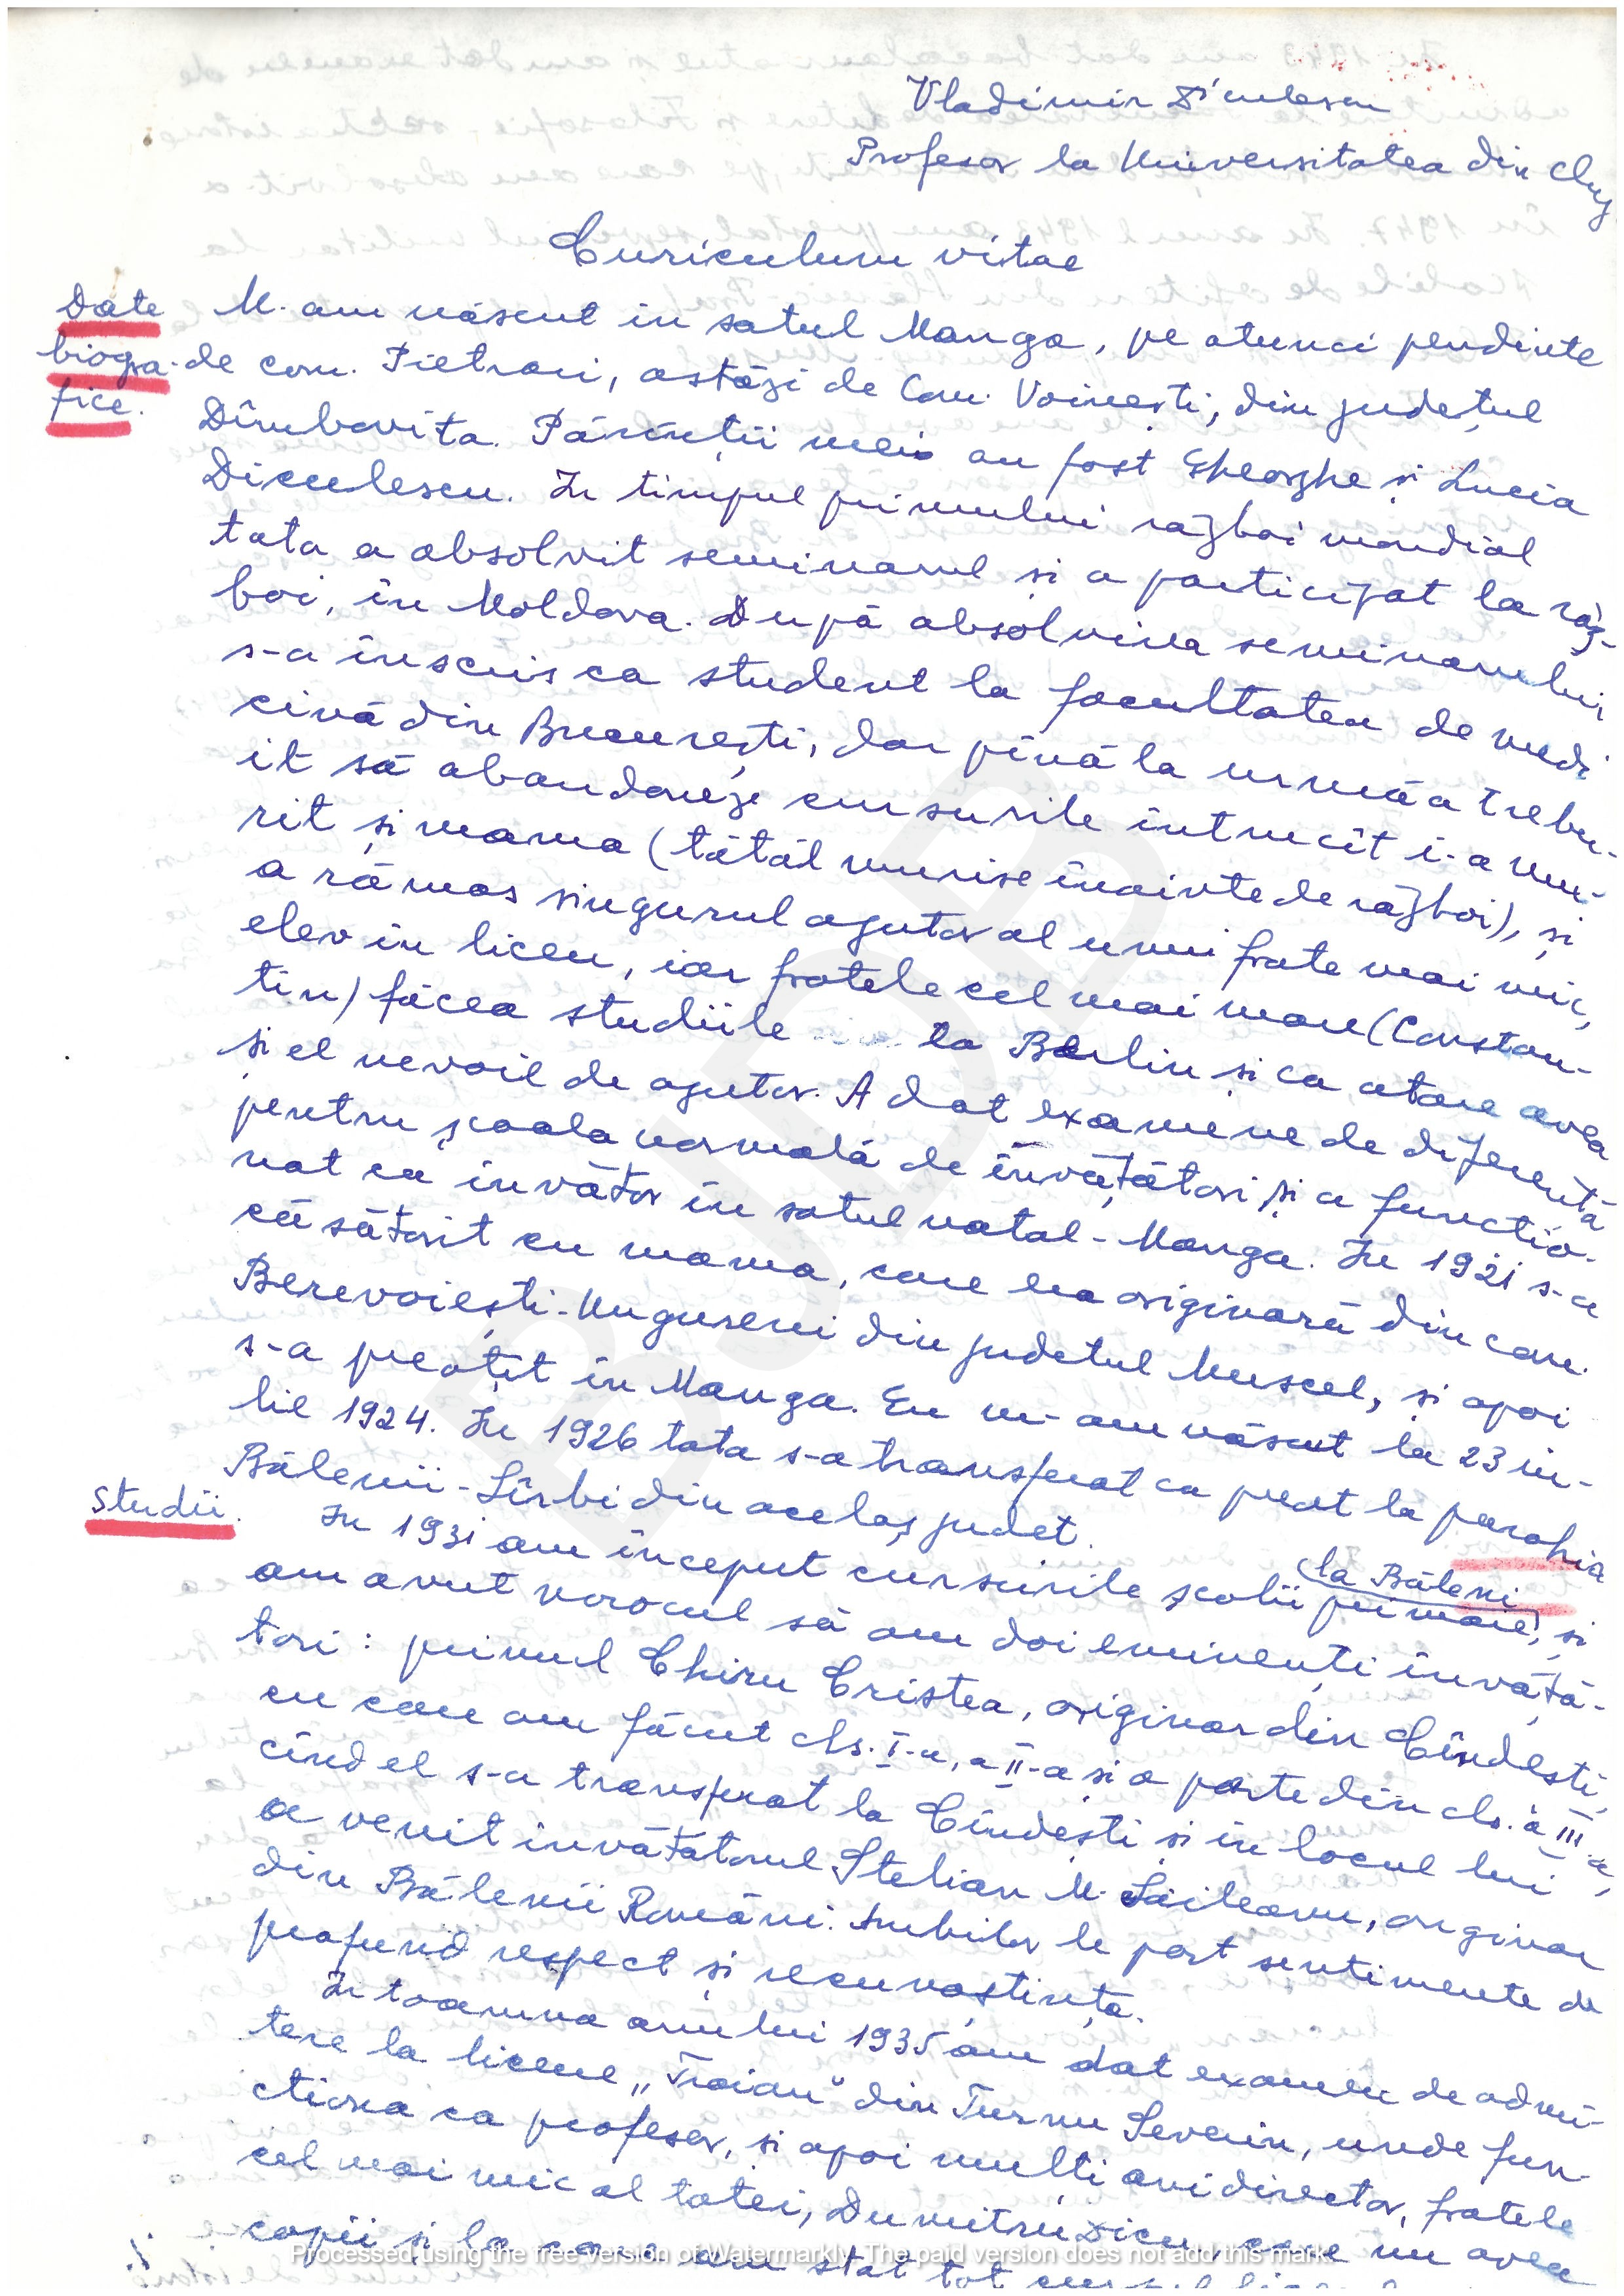 Vladimir Diculescu
Profesor la Universitatea din Cluj
Curiculum vitae
Date
biogra-
fice.
M-am născut în satul Manga, pe atunci pendinte
de com. Pietrari, astăzi de Com. Voinești, din județul
Dîmbovița. Părinții mei au fost Gheorghe și Lucia
Diculescu. În timpul primului război mondial
tata a absolvit seminarul și a participat la răz-
boi, în Moldova. După absolvirea seminarului,
s-a înscris ca student la facultatea de medi
cină din București, dar pînă la urmă a trebu-
it să abandoneze cursurile întrucît i-a mu-
rit și mama (tatăl murise înainte de război), și
a rămas singurul ajutor al unui frate mai mic,
elev în liceu, iar fratele cel mai mare (Constan-
tin) făcea studiile la Berlin și ca atare avea
și el nevoie de ajutor. A dat examene de diferență
pentru școala normală de învățători și a functio-
nat ca învățător în satul natal - Manga. În 1921 s-a
căsătorit cu mama, care era originară din com.
Berevoiești-Ungureni din județul Muscel, și apoi
s-a preoțit în Manga. Eu m-am născut la 23 iu-
lie 1924. În 1926 tata s-a transferat ca preot la parohia
Bălenii-Sîrbi din același județ.
Studii.
În 1931 am început cursurile școlii primare, și
la Băleni
am avut norocul să am doi eminenți învăță-
tori: primul Chiru Cristea, originar din Cîndești,
cu care am făcut cls. I-a, a II-a și o parte din cls. a III-a,
cînd el s-a transferat la Cîndești și în locul lui
a venit învățătorul Stelian M. Săileanu, originar
din Bălenii Români. Ambilor le port sentimente de
profund respect și recunoștința.
În toamna anului 1935 am dat examen de admi-
tere la liceul „Traian" din Turnu Severin, unde fun-
ctiona ca profesor, și apoi mulți ani director, fratele
cel mai mic al tatei, Dumitru Dicu, care nu avea
copii și la care am stat tot
Processed using the free version of Watermarkly. The paid version does not add this mark.
BJDB